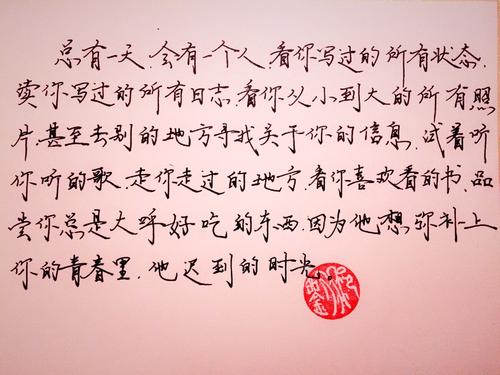 总有一天,会有一个人,看你写过的所有状态,
读你写过的所有日志,看你从小到大的所有照
片,甚至去别的地方寻找关于你的信息,试着听
你听的歌,走你走过的地方,看你喜欢看的书,品
尝你总是大呼好吃的东西,因为他想弥补上
你的青春里,他迟到的时光。